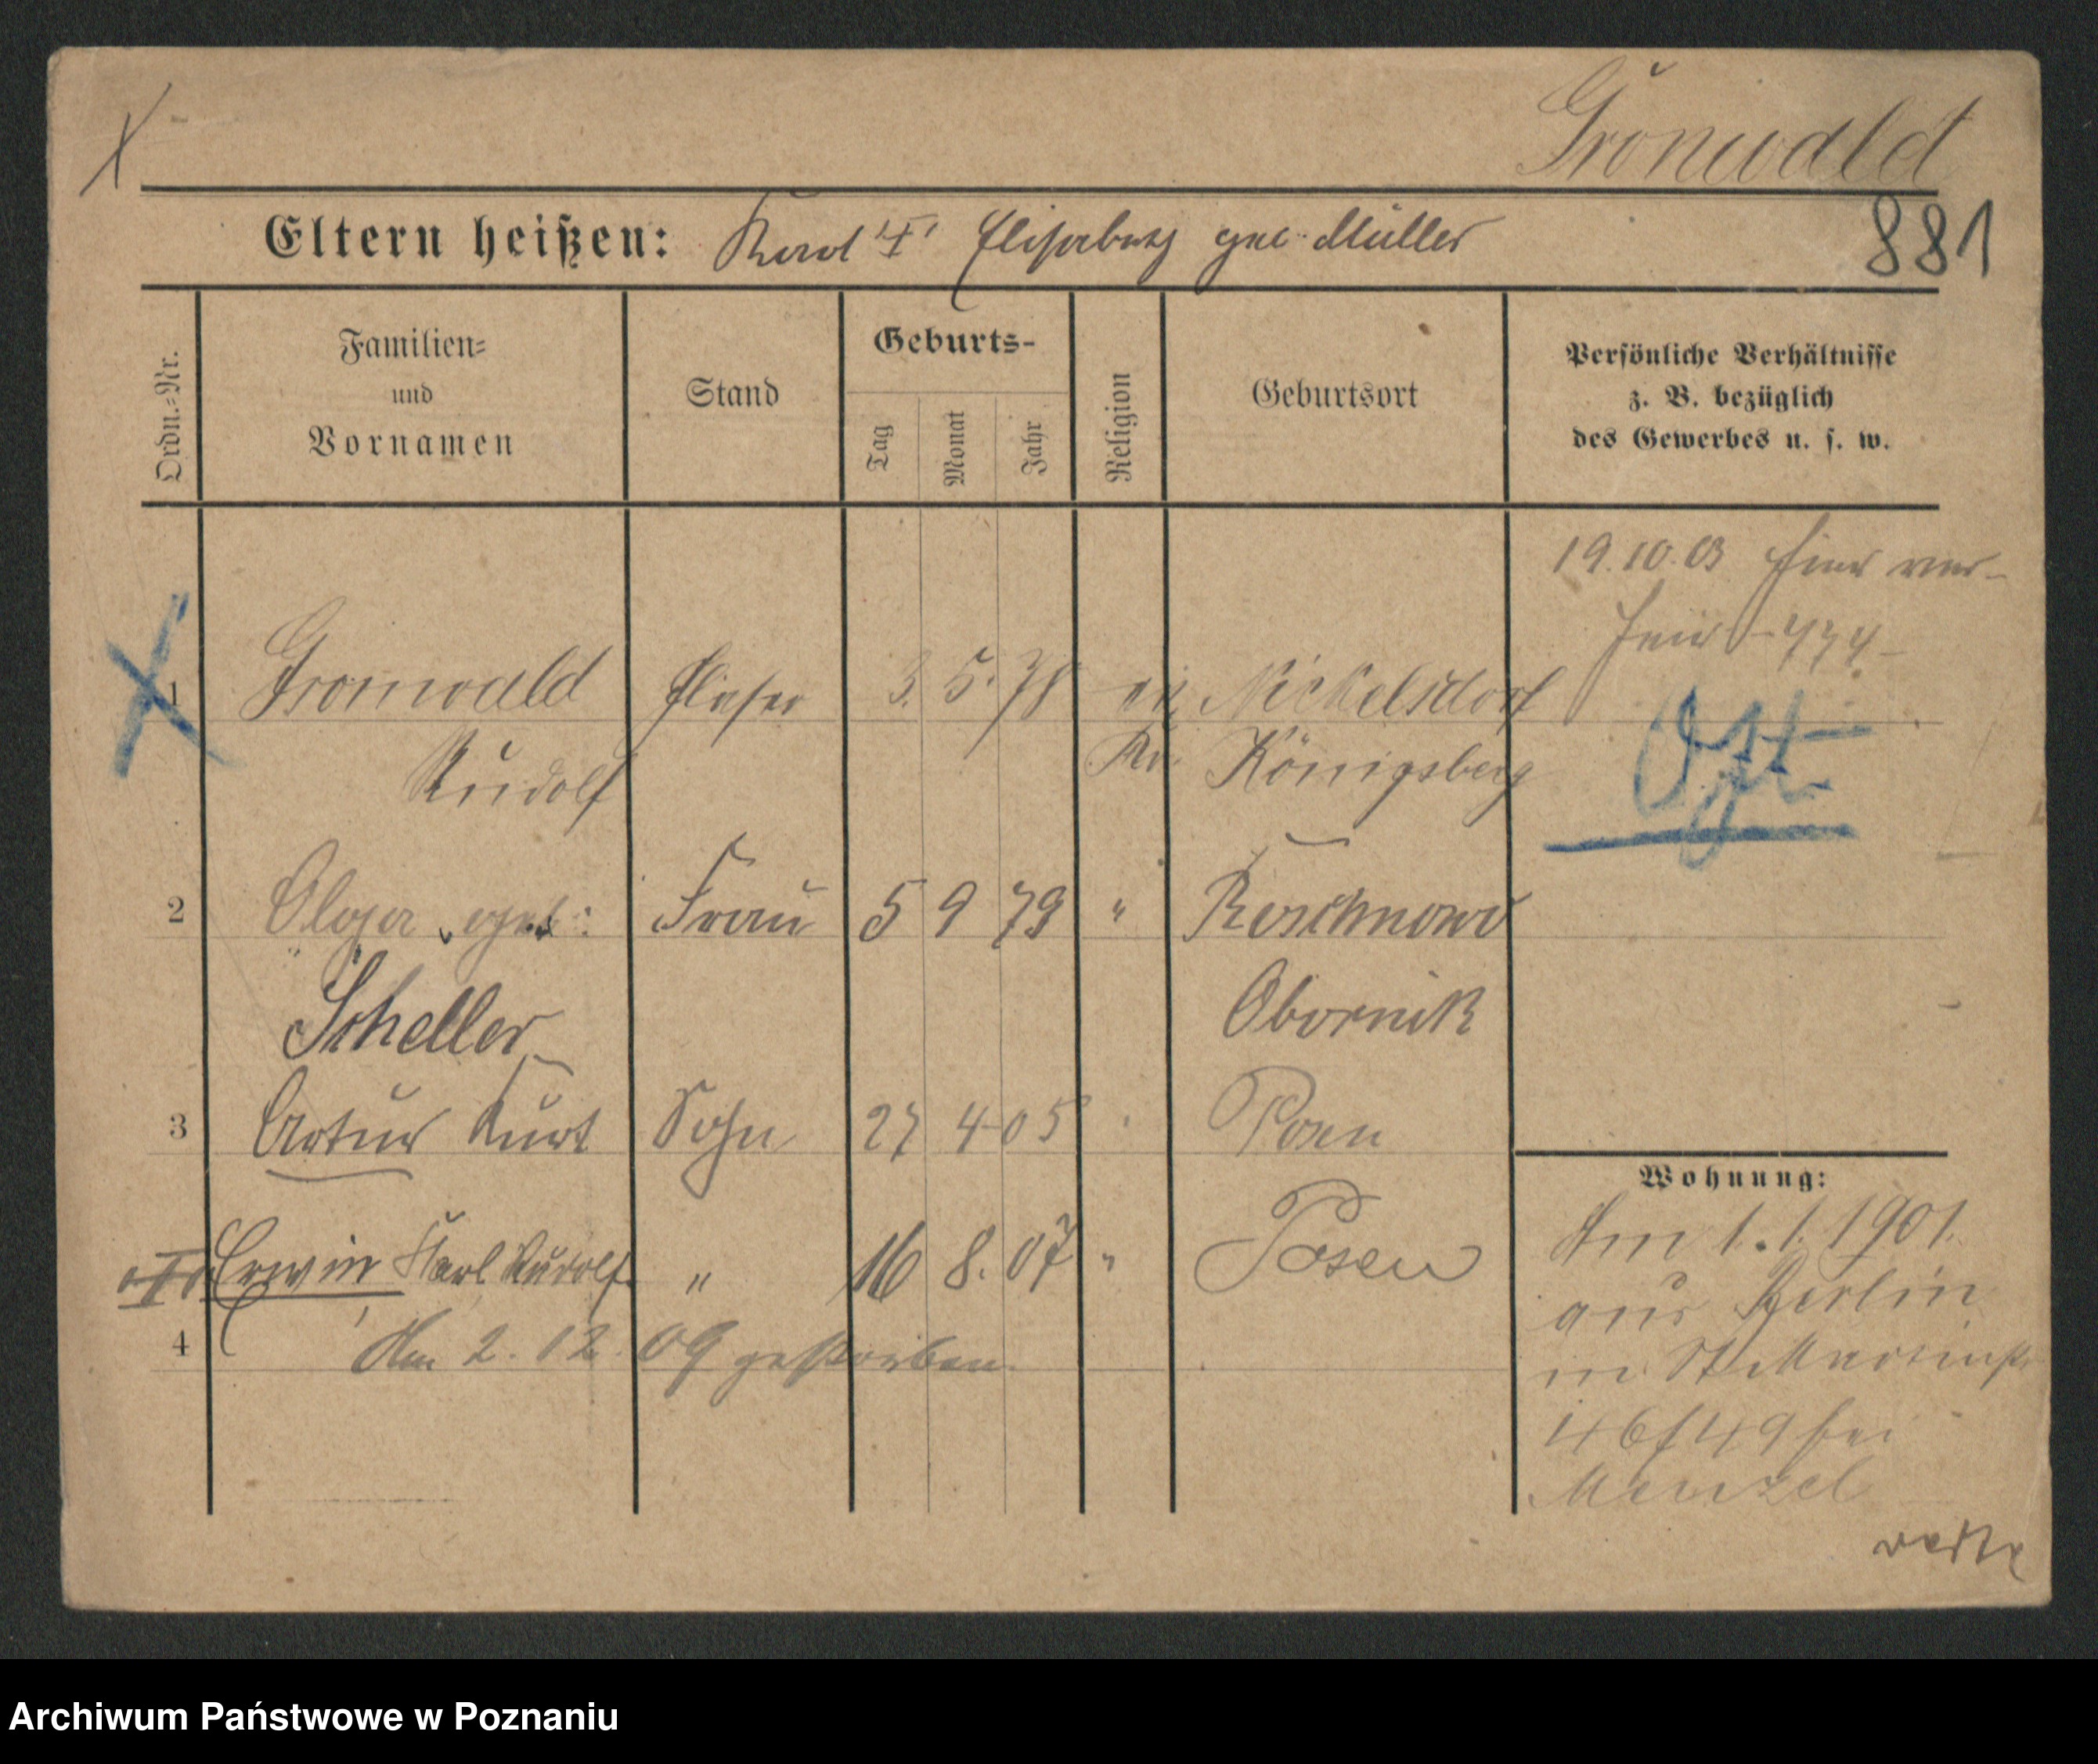 Gronwald
Eltern heißen: Karl u. Elisabeth geb. Müller
881
Ordn.=Nr.
Familien=
und
Vornamen
Stand
Geburts-
Tag
Monat
Jahr
Religion
Geburtsort
Persönliche Verhältnisse
z. B. bezüglich
des Gewerbes u. s. w.
19.10.03
1 Gronwald 3. 5. 78 ev Nickelsdorf
Rudolf Kr. Königsberg
2 Olga geb: Frau 5 9 79 "
Scheller Obornik
3 Artur Kurt Sohn 27 4 05 Posen
Erwin Karl Rudolf " 16 8. 07 " Posen
4 Am 2. 12. 09 gestorben.
Wohnung:
Am 1. 1. 1901.
aus Berlin
in St Martinstr
46/49 bei
Menzel
Archiwum Państwowe w Poznaniu